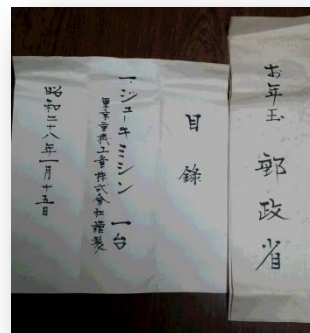 お年玉 郵政省
目録
一、ジューキミシン 一台
東京重機工業株式会社謹製
昭和二十八年一月十五日